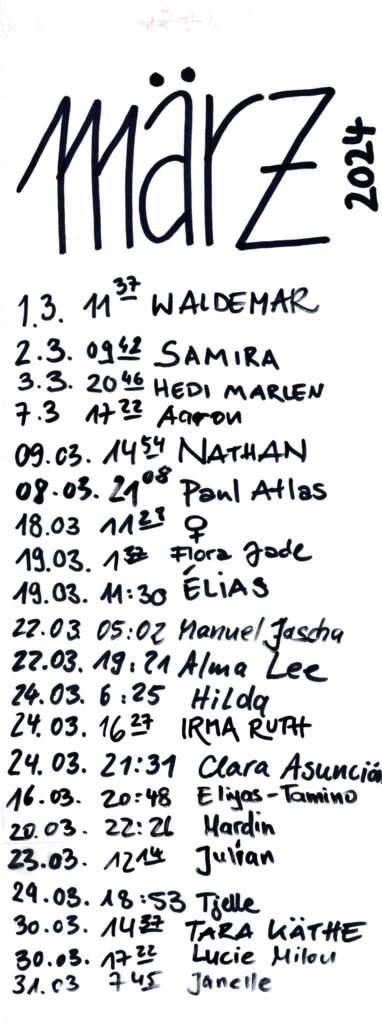 märz 2024
1.3. 11 37 WALDEMAR
2.3. 09 42 SAMIRA
3.3. 20 46 HEDI MARLEN
7.3 17 22 Aaron
09.03. 14 54 NATHAN
08.03. 21 08 Paul Atlas
18.03 11 23 ♀
19.03. 1 32 Flora Jade
19.03. 11:30 ÉLIAS
22.03 05:02 Manuel Jascha
22.03. 19:21 Alma Lee
24.03. 6:25 Hilda
24.03. 16 27 IRMA RUTH
24.03. 21:31 Clara Asunción
16.03. 20:48 Eliyas-Tamino
20.03. 22:26 Mardin
23.03. 12 14 Julian
29.03. 18:53 Tjelle
30.03. 14 37 TARA KÄTHE
30.03. 17 22 Lucie Milou
31.03 7 45 Janelle